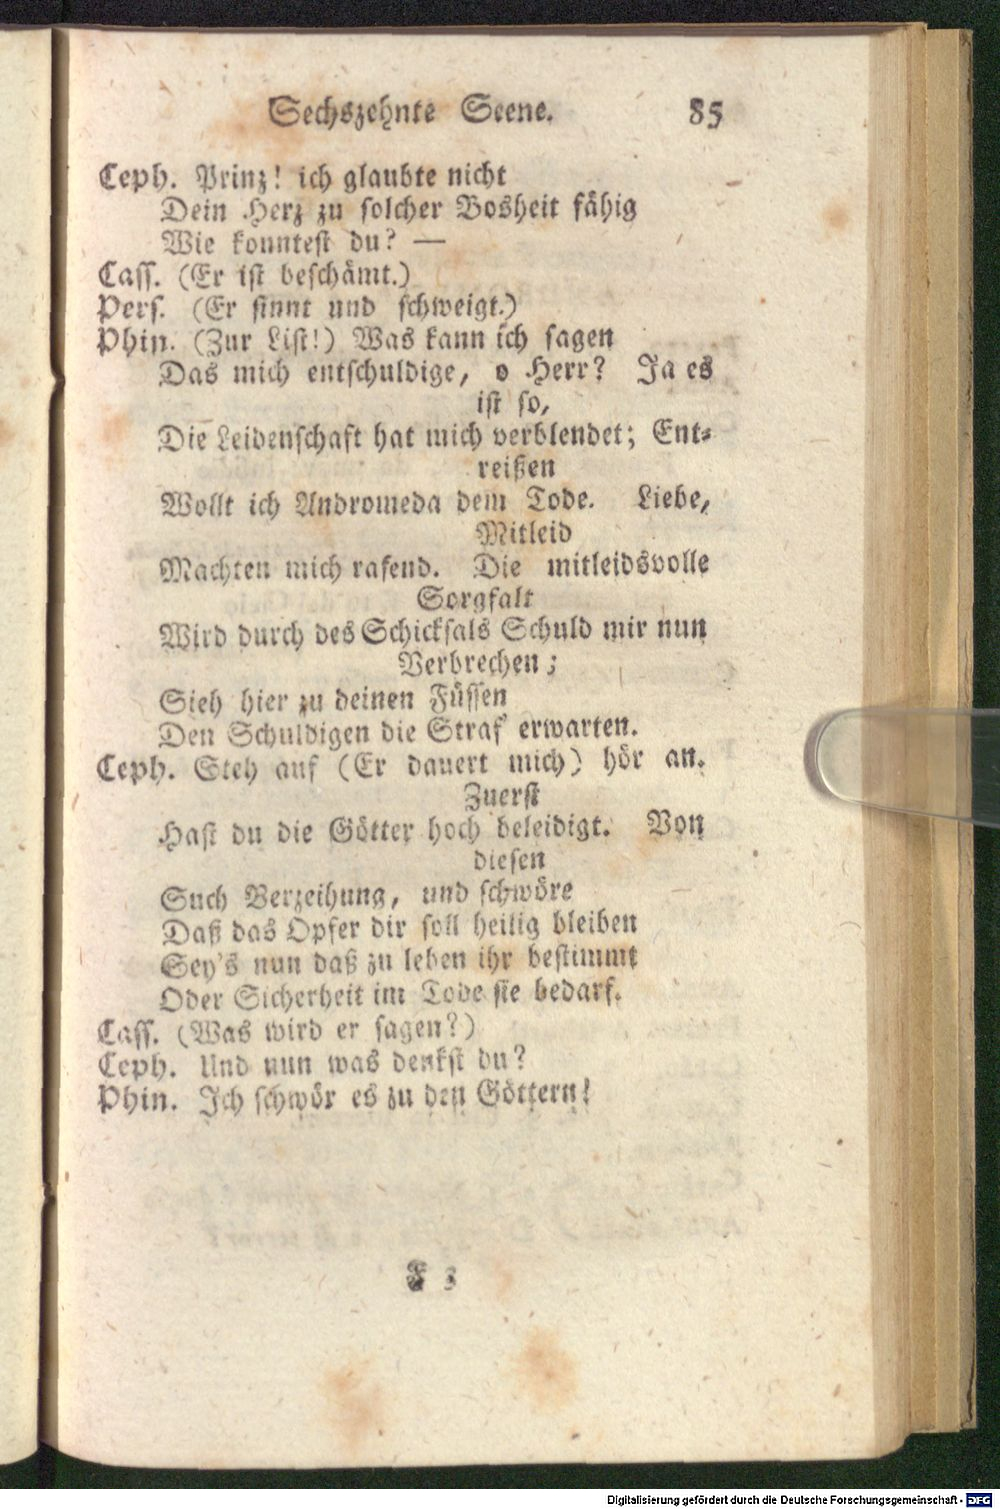 Sechszehnte Scene. 85
Ceph. Prinz! ich glaubte nicht
Dein Herz zu solcher Bosheit fähig
Wie konntest du? —
Cass. (Er ist beschämt.)
Pers. (Er sinnt und schweigt.)
Phin. (Zur List!) Was kann ich sagen
Das mich entschuldige, o Herr? Ja es
ist so,
Die Leidenschaft hat mich verblendet; Ent-
reißen
Wollt ich Andromeda dem Tode. Liebe,
Mitleid
Machten mich rasend. Die mitleidsvolle
Sorgfalt
Wird durch des Schicksals Schuld mir nun
Verbrechen;
Sieh hier zu deinen Füssen
Den Schuldigen die Straf' erwarten.
Ceph. Steh auf (Er dauert mich) hör an.
Zuerst
Hast du die Götter hoch beleidigt. Von
diesen
Such Verzeihung, und schwöre
Daß das Opfer dir soll heilig bleiben
Sey's nun daß zu leben ihr bestimmt
Oder Sicherheit im Tode sie bedarf.
Cass. (Was wird er sagen?)
Ceph. Und nun was denkst du?
Phin. Ich schwör es zu den Göttern!
F 3
Digitalisierung gefördert durch die Deutsche Forschungsgemeinschaft - DFG